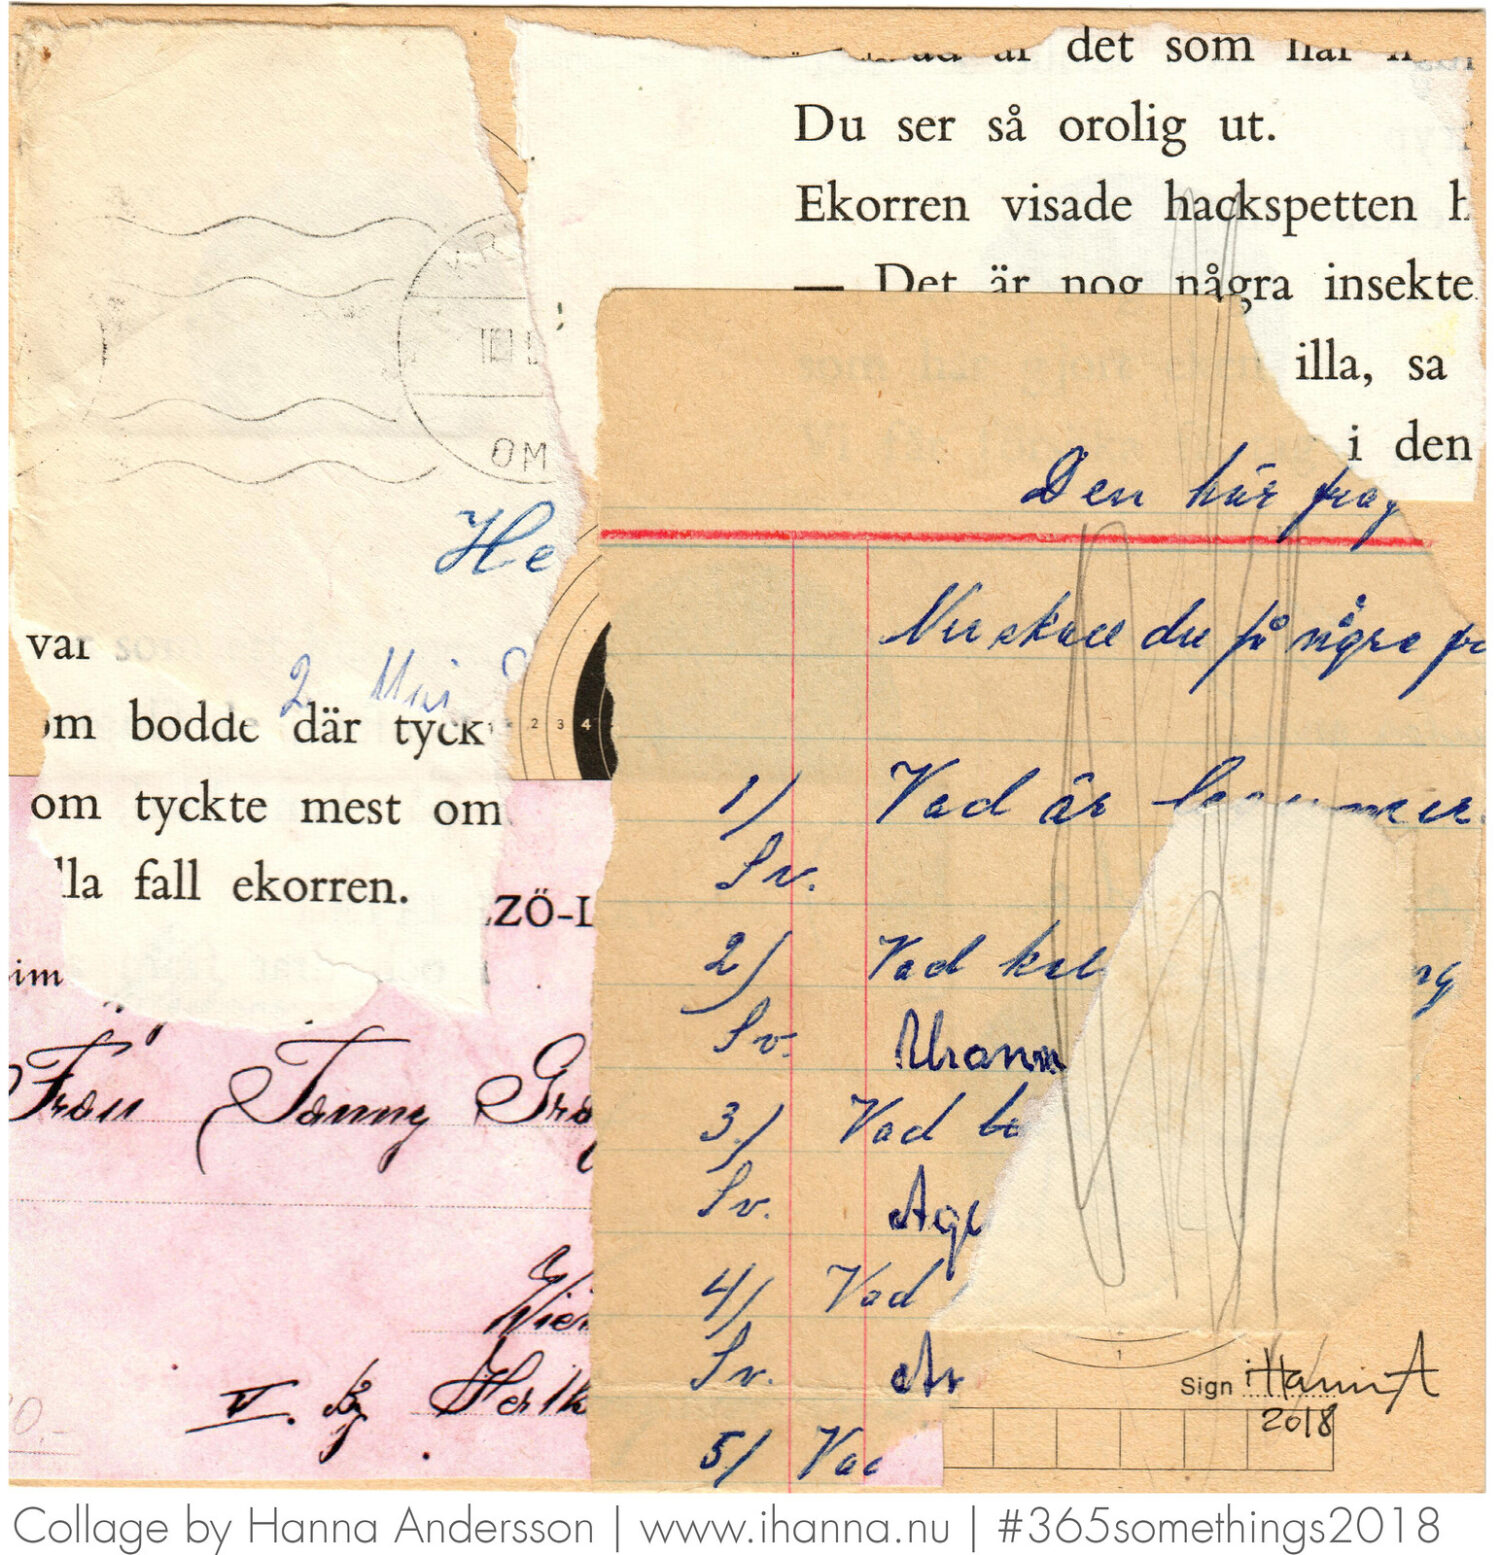 det som har
Du ser så orolig ut.
Ekorren visade hackspetten h
— Det är nog några insekte
illa, sa
i den
KR
OM
He
Den här frag
Nu skall du få några fr
var som
2. Mai
om bodde där tyck
om tyckte mest om
lla fall ekorren.
2 3 4
1/ Vad är
Sv.
2/ Vad kal ng
Sv. Uran
3/ Vad be
Sv. Age
4/ Vad
Sv. Ar
5/ Vad
ZÖ-L
im
Frau Fanny Gra
Wien
V. Bz Herth
1
Sign iHanna A
2018
Collage by Hanna Andersson | www.ihanna.nu | #365somethings2018